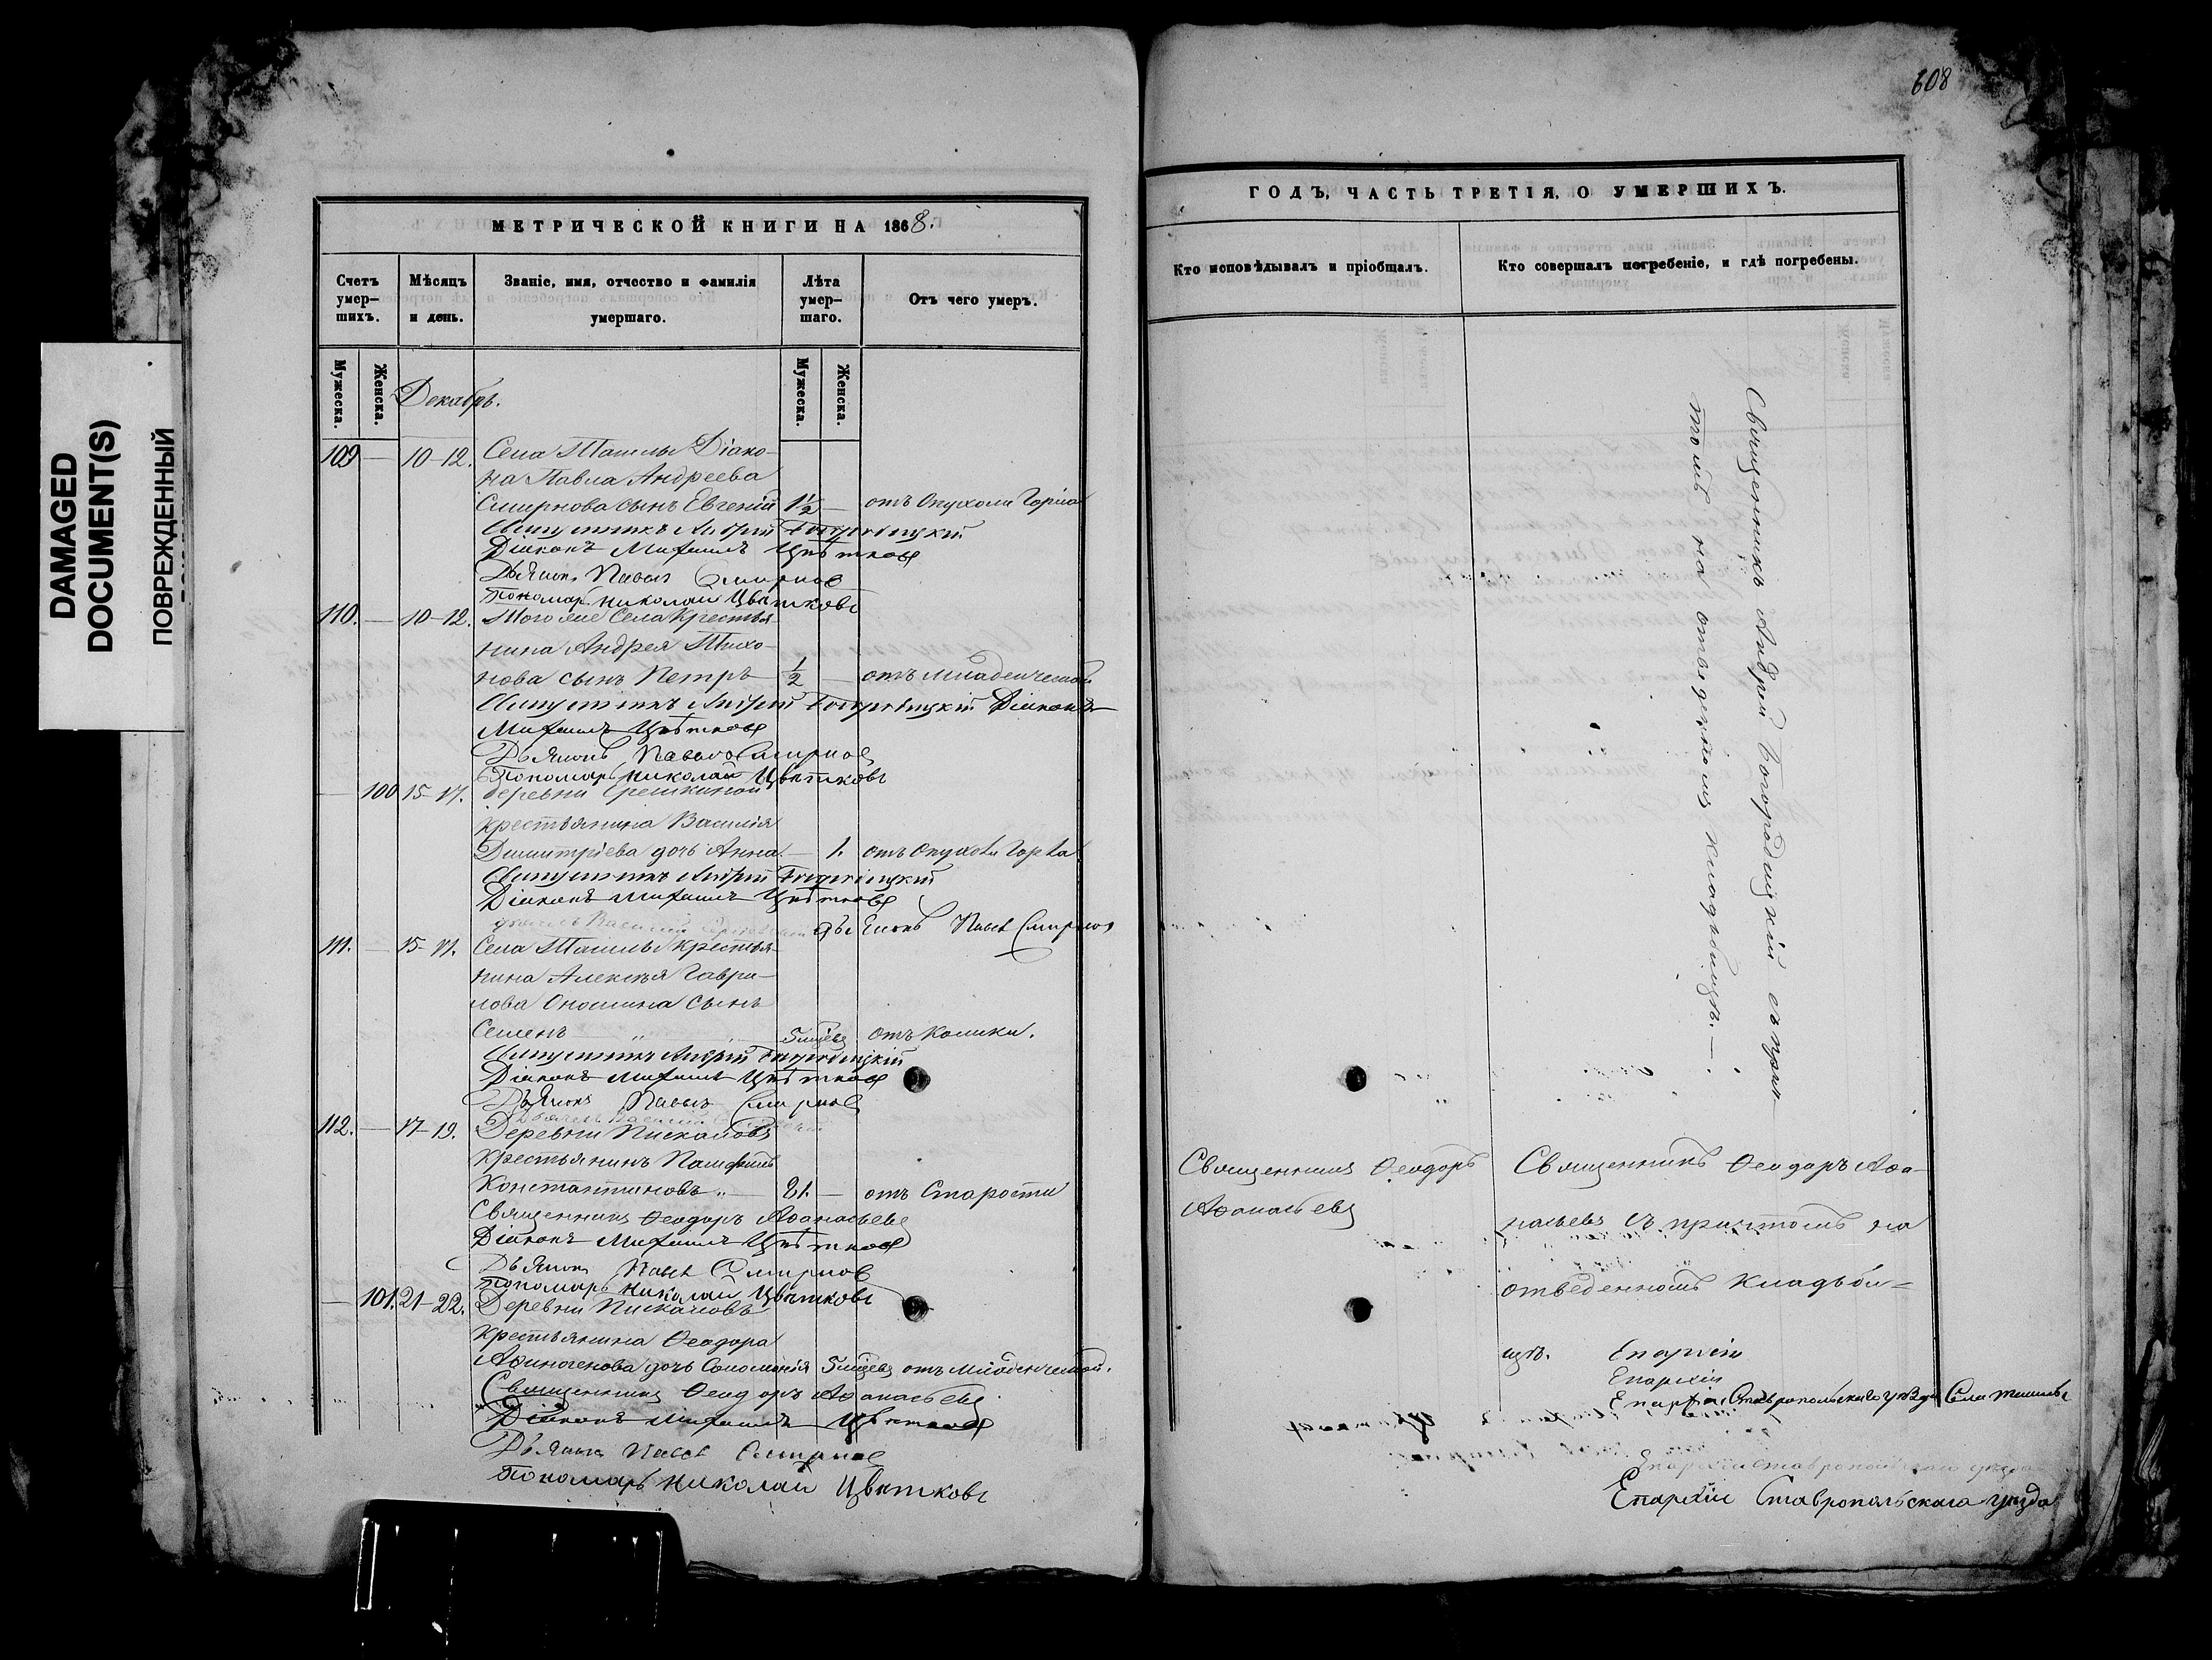 DAMAGED
DOCUMENT(S)
ПОВРЕЖДЕННЫЙ
608
МЕТРИЧЕСКОЙ КНИГИ НА 1868.
Счетъ умер-шихъ.
Мѣсяцъ и день.
Званіе, имя, отчество и фамилія умершаго.
Лѣта умер-шаго.
Отъ чего умеръ.
Мужеска.
Женска.
Мужеска.
Женска.
Декабрь.
109 — 10-12. Села Ташлы Діако-
на Павла Андреева
Смирнова сынъ Евгеній 1½ — отъ Опухоли Горла
Священникъ Андрей Богородицкій
Діаконъ Михаилъ Цвѣтковъ
Дьячокъ Павелъ Смирнов
Пономарь Николай Цвѣтковъ
110. — 10-12. Того же Села Крестья-
нина Андрея Тихо-
нова сынъ Петръ ½ — отъ младенческой
Священникъ Андрей Богородицкій Діаконъ
Михаилъ Цвѣтковъ
Дьячокъ Павелъ Смирнов
Пономарь Николай Цвѣтковъ
— 100 15-17. деревни Грешкиной
крестьянина Василія
Димитріева дочь Анна — 1. отъ Опухоли Горла
Священникъ Андрей Богородицкій
Діаконъ Михаилъ Цвѣтковъ
Василій
Павел Смирнов
111. — 15-17. Села Ташлы крестья-
нина Алексѣя Гаври-
лова сынъ
Семенъ 5 мѣсец отъ Колики.
Священникъ Андрей Богородицкій
Діаконъ Михаилъ Цвѣтковъ
Дьячокъ Павелъ Смирнов
112. — 17-19. Деревни Пискаловъ
Крестьянинъ Памфилъ
Константиновъ 81. — отъ Старости
Священникъ Ѳеодоръ Аѳанасьевъ
Діаконъ Михаилъ Цвѣтковъ
Дьячокъ Павел Смирнов
Пономарь Николай Цвѣтковъ
— 101. 21-22. Деревни Пискаловъ
крестьянина Ѳеодора
Аѳиногенова дочь Соломонія 5 мѣсец отъ младенческой.
Священникъ Ѳеодоръ Аѳанасьевъ
Діаконъ Михаилъ Цвѣтковъ
Дьячокъ Павел Смирнов
Пономарь Николай Цвѣтковъ
ГОДЪ, ЧАСТЬ ТРЕТІЯ, О УМЕРШИХЪ.
Кто исповѣдывалъ и пріобщалъ.
Кто совершалъ погребеніе, и гдѣ погребены.
Священникъ Андрей Богородицкій съ прич-
томъ на отведенномъ кладбищѣ.
Священникъ Ѳеодоръ
Аѳанасьевъ
Священникъ Ѳеодоръ Аѳа-
насьевъ съ причтомъ на
отведенномъ Кладьби-
щѣ.
Епархіи
Епархіи
Епархіи Ставропольскаго уѣзда Села Ташлы
Епархіи Ставропольскаго уѣзда
Епархіи Ставропольскаго уѣзда